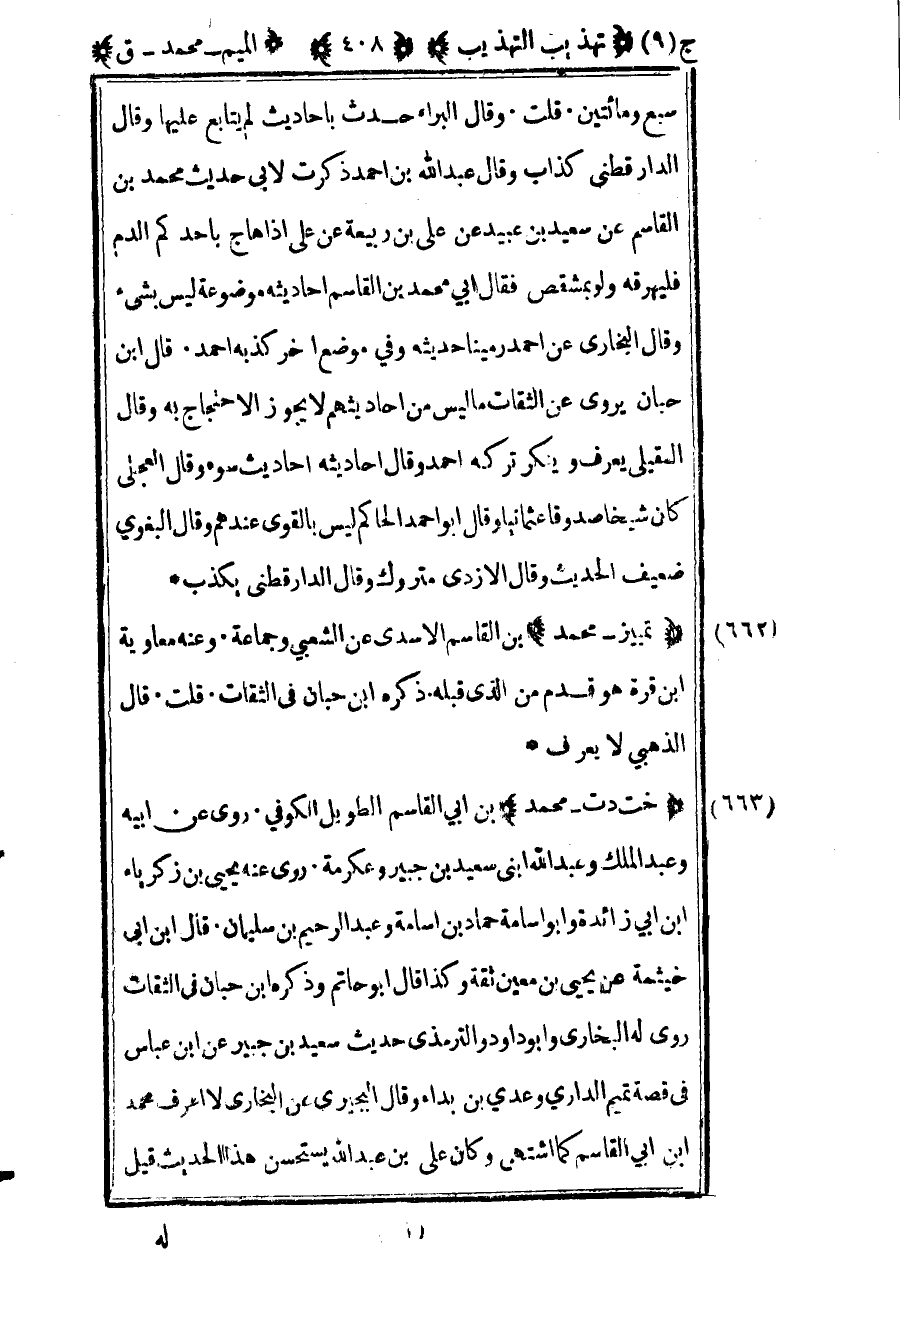 ج (٩) ﴿ تهذيب التهذيب ﴾ ﴿ ٤٠٨ ﴾ ﴿ الميم ـ محمد ـ ق ﴾
سبع ومائتين · قلت · وقال البراء حـدث باحاديث لم يتابع عليها وقال
الدار قطنى كذاب وقال عبدالله بن احمد ذكرت لابي حديث محمد بن
القاسم عن سعيد بن عبيد عن على بن ربيعة عن على اذا هاج باحد كم الدم
فليهرقه ولو بمشقص فقال ابي محمد بن القاسم احاديثه موضوعة ليس بشىء
وقال البخارى عن احمد رمينا حديثه وفي موضع اخر كذبه احمد · قال ابن
حبان يروى عن الثقات ما ليس من احاديثهم لا يجوز الاحتجاج به وقال
العقيلي يعرف و ينكر تركه احمد وقال احاديثه احاديث سوء وقال العجلى
كان شيخا صدوقا عثمانيا وقال ابو احمد الحاكم ليس بالقوى عندهم وقال البغوي
ضعيف الحديث وقال الازدى متروك وقال الدارقطنى يكذب *
(٦٦٢) ﴿ تمييز ـ محمد ﴾ بن القاسم الاسدى عن الشعبي وجماعة · وعنه معاوية
ابن قرة هو قـدم من الذى قبله · ذكره ابن حبان فى الثقات · قلت · قال
الذهبي لا يعرف *
(٦٦٣) ﴿ خت د ت ـ محمد ﴾ بن ابي القاسم الطويل الكوفي · روى عن ابيه
وعبد الملك وعبدالله ابنى سعيد بن جبير وعكرمة · روى عنه يحيى بن زكرياء
ابن ابي زائدة وابو اسامة حماد بن اسامة وعبد الرحيم بن سليمان · قال ابن ابى
خيثمة عن يحيى بن معين ثقة وكذا قال ابو حاتم وذكره ابن حبان فى الثقات
روى له البخارى وابو داود والترمذى حديث سعيد بن جبير عن ابن عباس
فى قصة تميم الداري وعدي بن بداء وقال البجيرى عن البخارى لا اعرف محمد
ابن ابي القاسم كما اشتهى وكان على بن عبدالله يستحسن هذا الحديث قيل
له